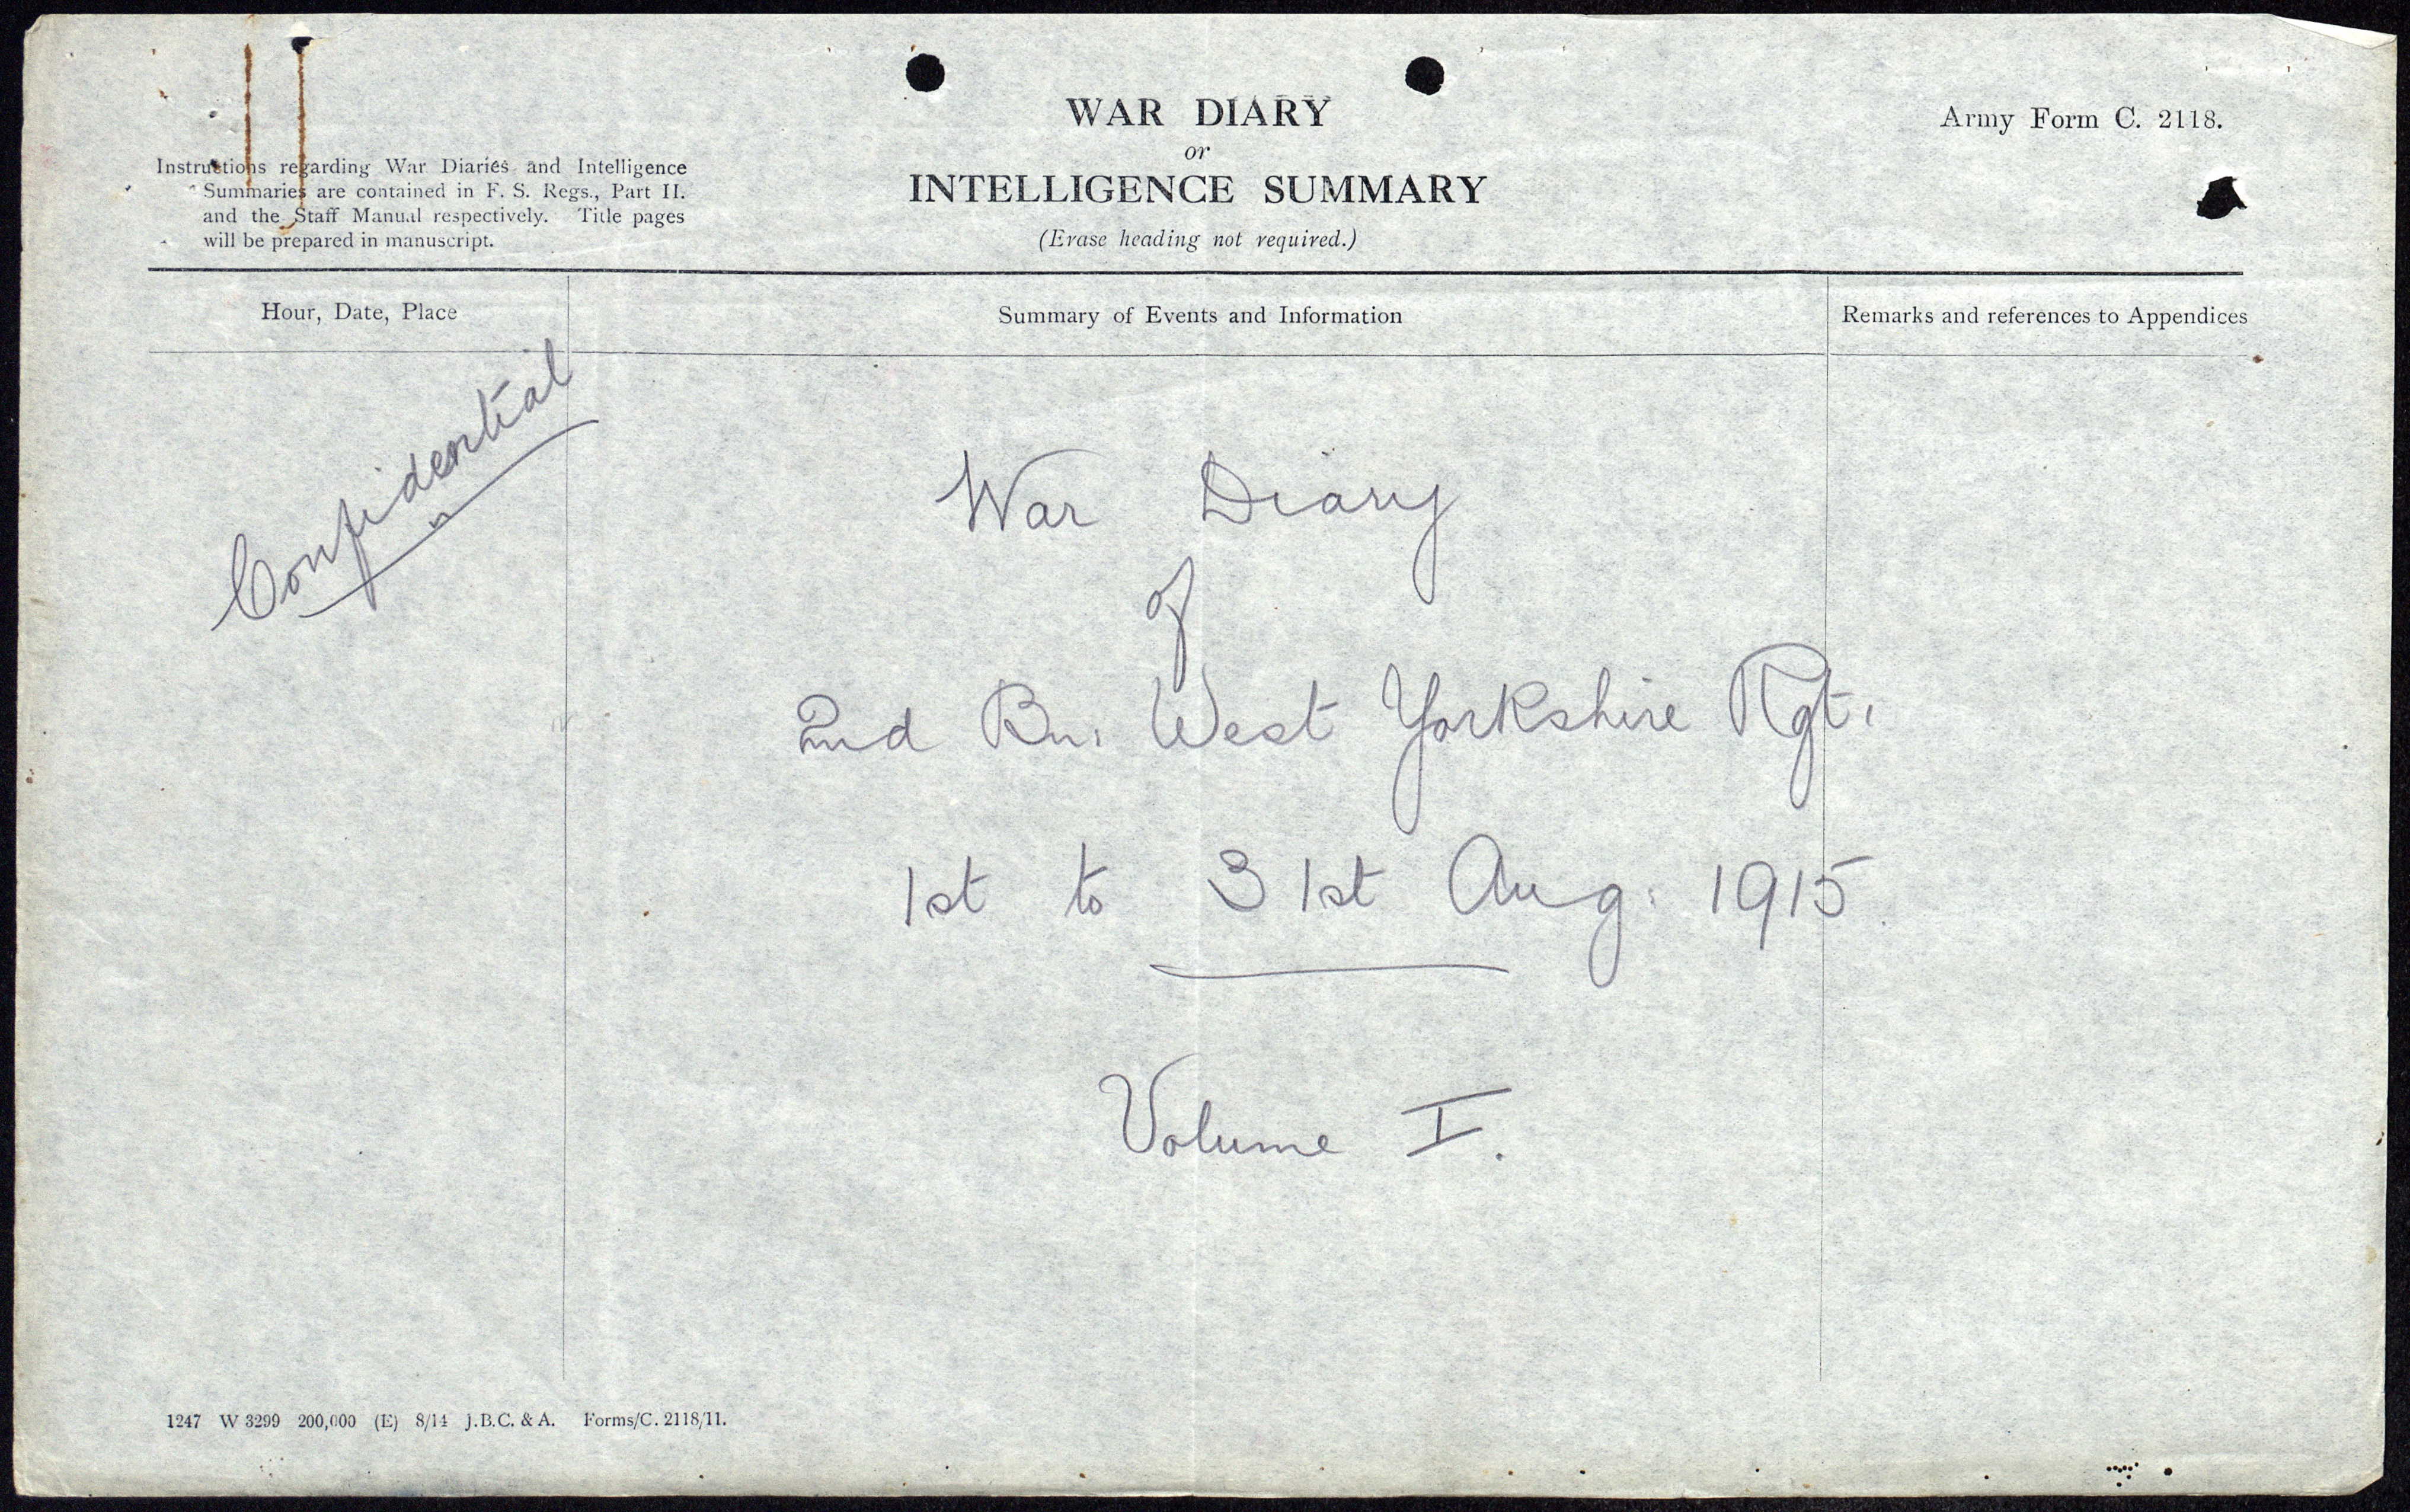 WAR DIARY
or
INTELLIGENCE SUMMARY
(Erase heading not required.)
Army Form C. 2118.
Instructions regarding War Diaries and Intelligence
Summaries are contained in F. S. Regs., Part II.
and the Staff Manual respectively. Title pages
will be prepared in manuscript.
Hour, Date, Place
Summary of Events and Information
Remarks and references to Appendices
Confidential
War Diary
of
2nd Bn. West Yorkshire Rgt.
1st to 31st Aug: 1915
Volume I.
1247 W 3299 200,000 (E) 8/14 J.B.C. & A. Forms/C. 2118/11.